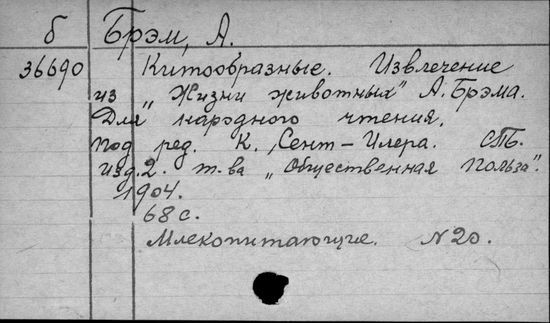 б Брэм, А.
36690 Китообразные. Извлечение
из „Жизни животных" А. Брэма.
Для народного чтения.
Под ред. К. Сент-Илера. СПБ.
изд. 2. т-ва „Общественная Польза".
1904.
68 с.
Млекопитающие. N 20.